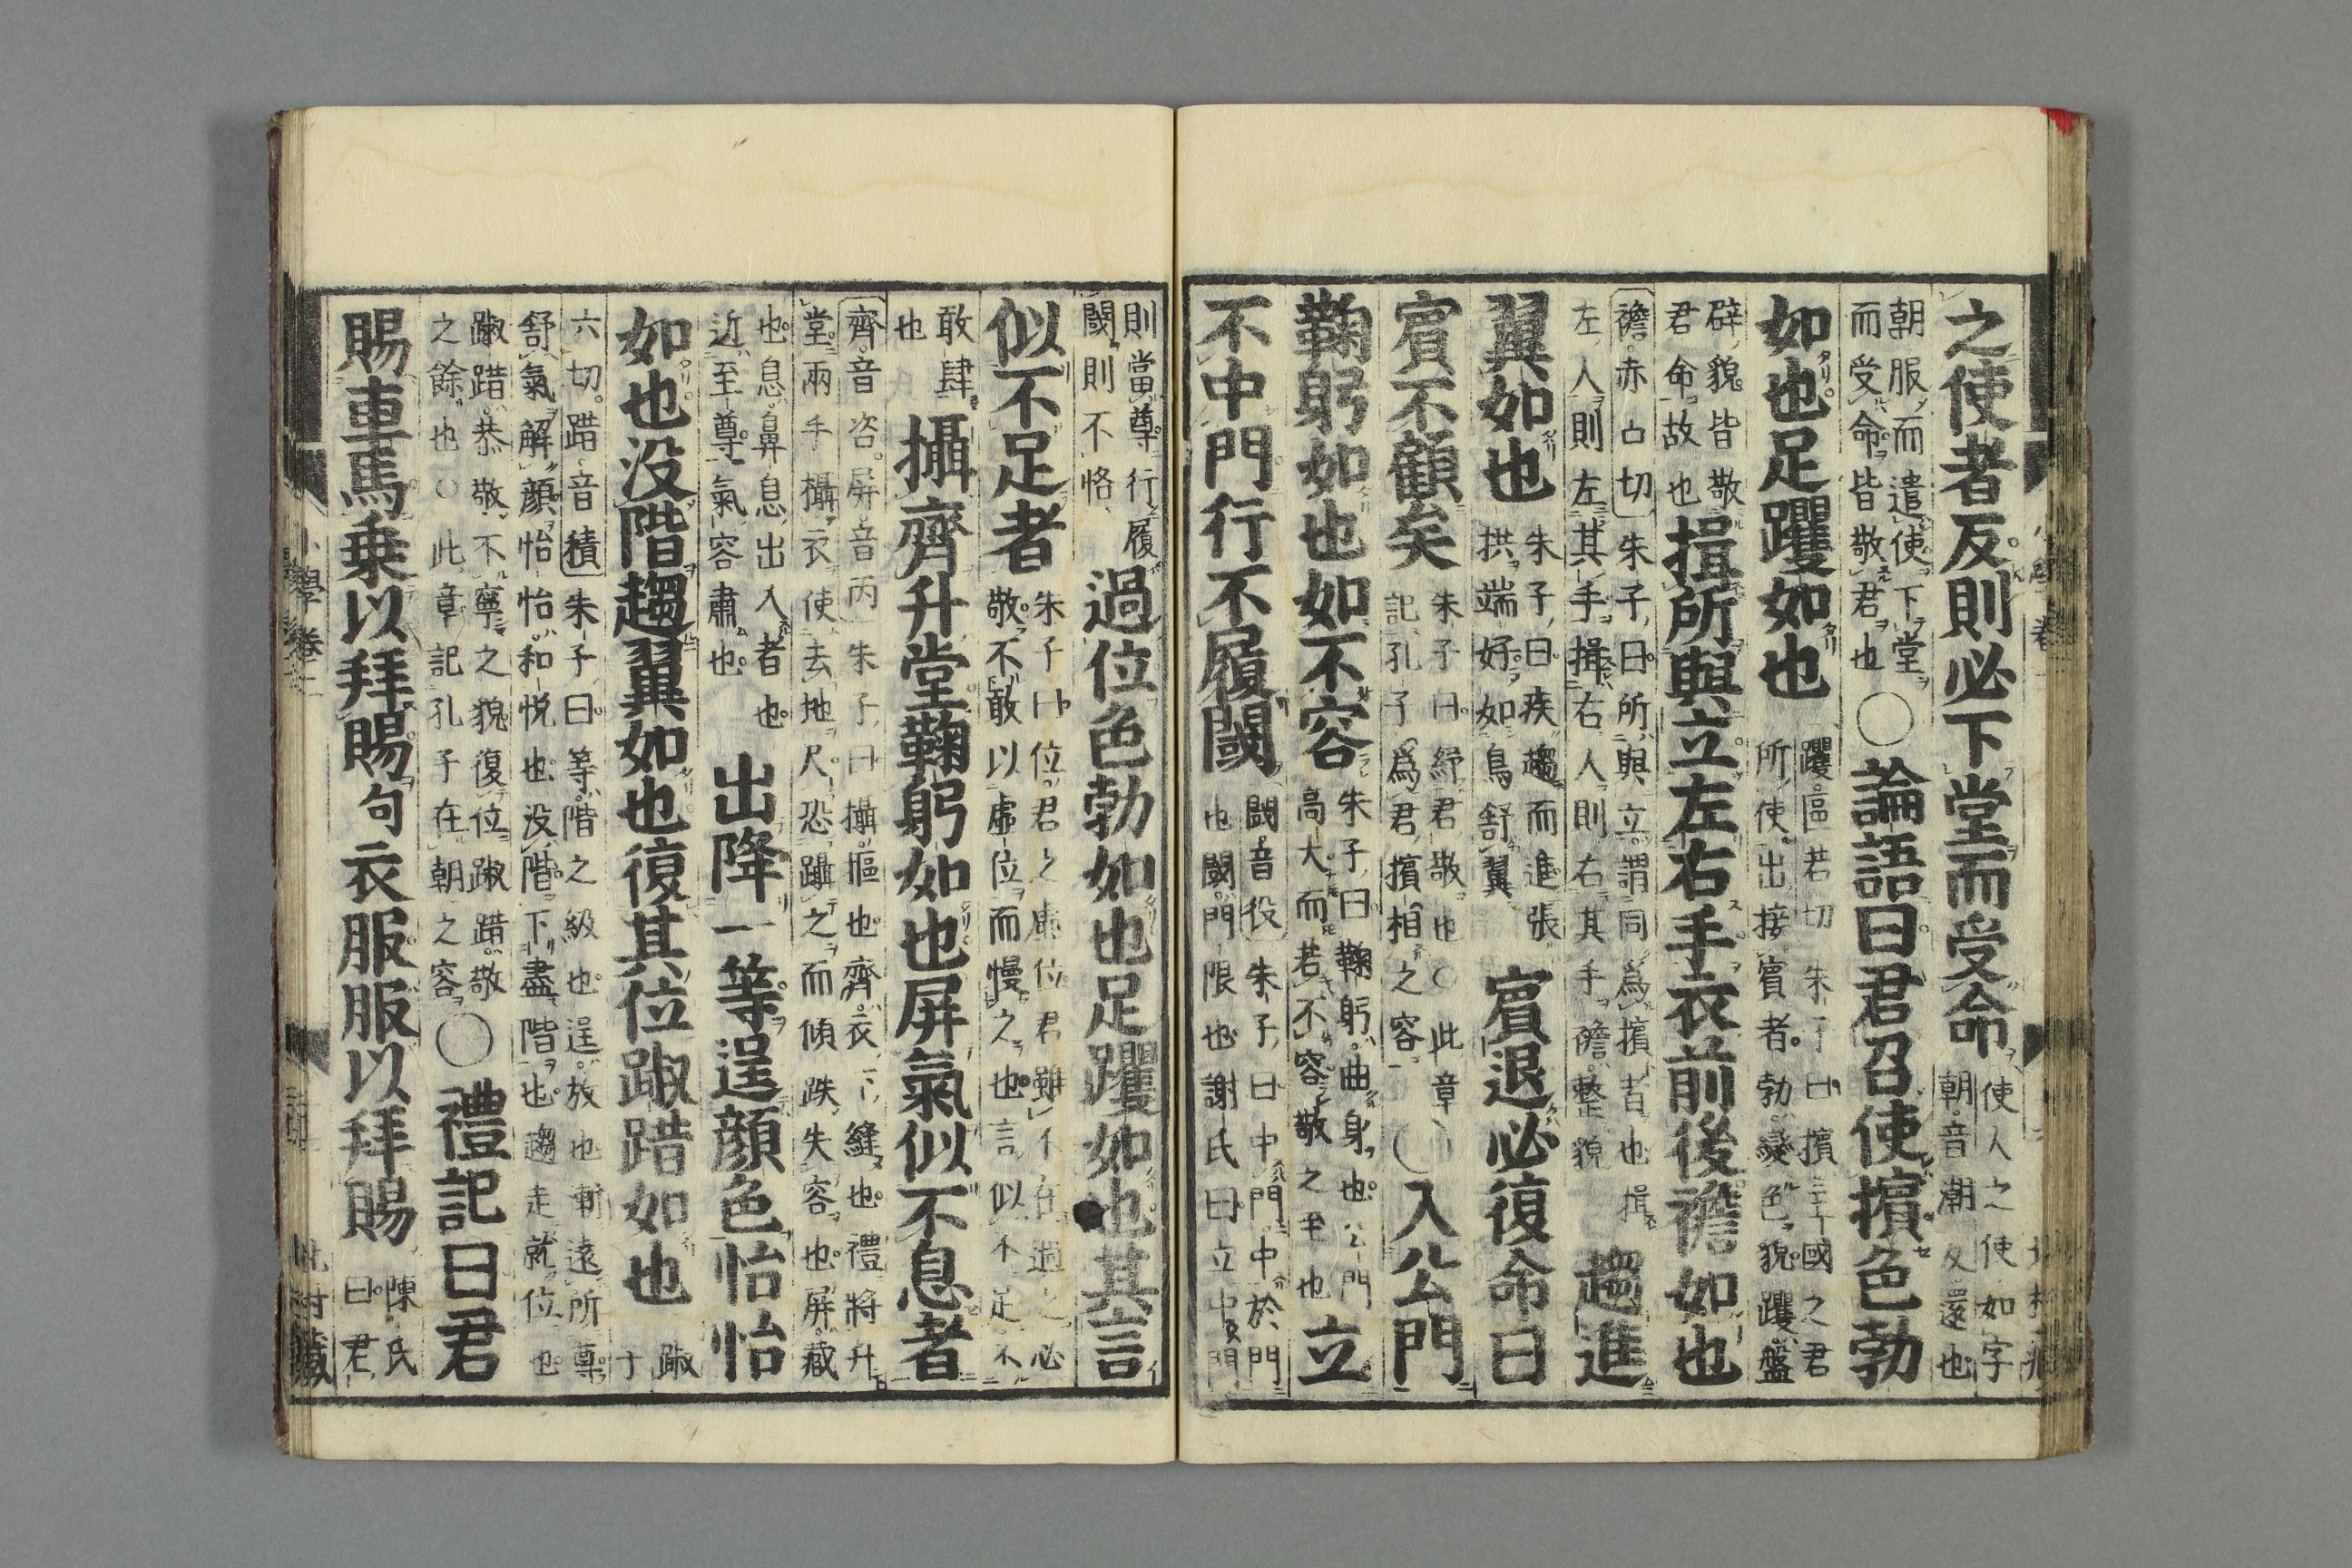 之使者反則必下堂而受命使人之使如字朝音潮反還也
朝服而遣使下堂而受命皆敬君也〇論語曰君召使擯色勃
如也足躩如也躩區若切朱子曰擯主國之君所使出接賓者勃變色貌躩盤
辟貌皆敬君命故也揖所與立左右手衣前後襜如也
襜赤占切朱子曰所與立謂同爲擯者也揖左人則左其手揖右人則右其手襜整貌趨進
翼如也朱子曰疾趨而進張拱端好如鳥舒翼賓退必復命曰
賓不顧矣朱子曰紓君敬也〇此章記孔子爲君擯相之容〇入公門
鞠躬如也如不容朱子曰鞠躬曲身也公門高大而若不容敬之至也立
不中門行不履閾閾音役朱子曰中門中於門也閾門限也謝氏曰立中門
則當尊行履閾則不恪過位色勃如也足躩如也其言
似不足者朱子曰位君之虛位君雖不在過之必敬不敢以虛位而慢之也言似不足不
敢肆也攝齊升堂鞠躬如也屏氣似不息者
齊音咨屏音丙朱子曰攝摳也齊衣下縫也禮將升堂兩手攝衣使去地尺恐躡之而傾跌失容也屏藏
也息鼻息出入者也近至尊氣容肅也出降一等逞顔色怡怡
如也没階趨翼如也復其位踧踖如也踧子
六切踖音積朱子曰等階之級也逞放也漸遠所尊舒氣解顔怡怡和悦也没階下盡階也趨走就位也
踧踖恭敬不寧之貌復位踧踖敬之餘也〇此章記孔子在朝之容〇禮記曰君
賜車馬乗以拜賜句衣服服以拜賜陳氏曰君
小學卷二